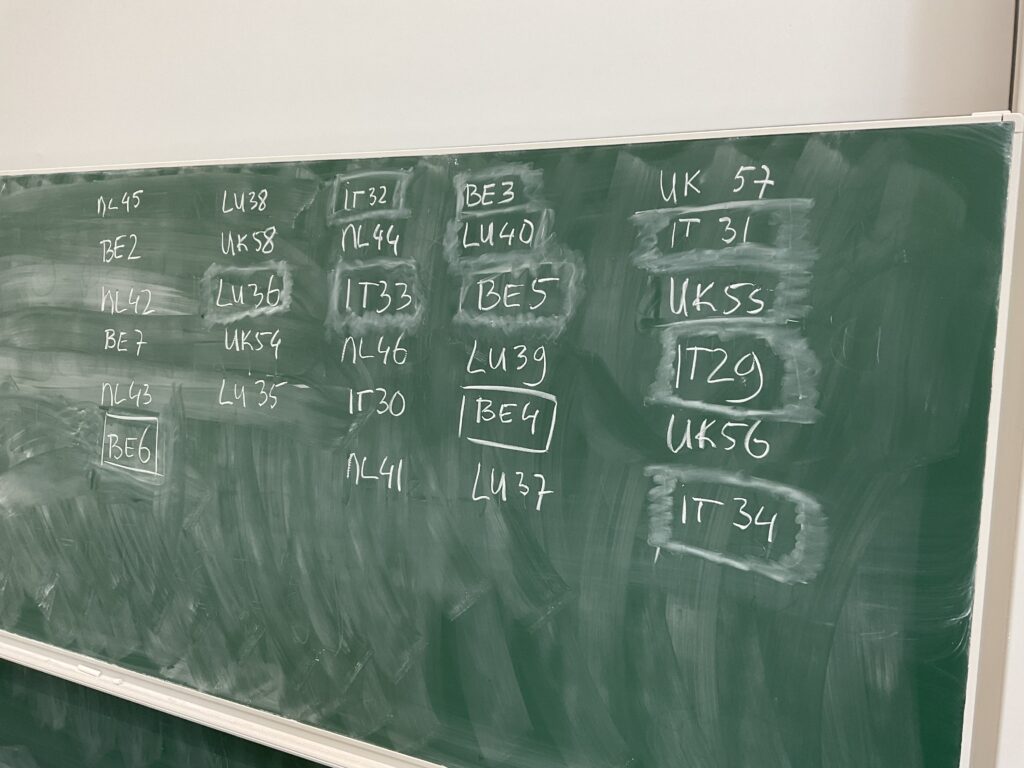 NL45 LU38 IT32 BE3 UK 57
BE2 UK58 NL44 LU40 IT 31
NL42 LU36 IT33 BE5 UK55
BE7 UK54 NL46 LU39 IT29
NL43 LU35 IT30 BE4 UK56
BE6 NL41 LU37 IT 34